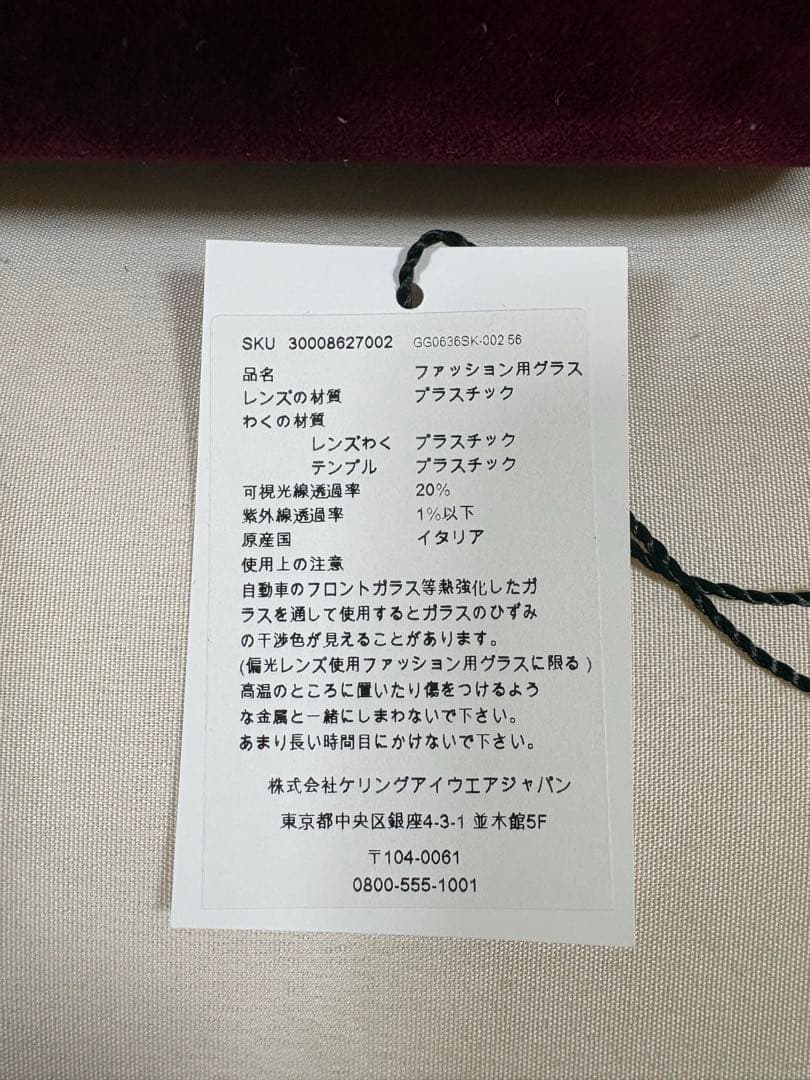 SKU 30008627002 GG0636SK-002 56
品名 ファッション用グラス
レンズの材質 プラスチック
わくの材質
レンズわく プラスチック
テンプル プラスチック
可視光線透過率 20%
紫外線透過率 1%以下
原産国 イタリア
使用上の注意
自動車のフロントガラス等熱強化したガ
ラスを通して使用するとガラスのひずみ
の干渉色が見えることがあります。
(偏光レンズ使用ファッション用グラスに限る)
高温のところに置いたり傷をつけるよう
な金属と一緒にしまわないで下さい。
あまり長い時間目にかけないで下さい。
株式会社ケリングアイウエアジャパン
東京都中央区銀座4-3-1 並木館5F
〒104-0061
0800-555-1001